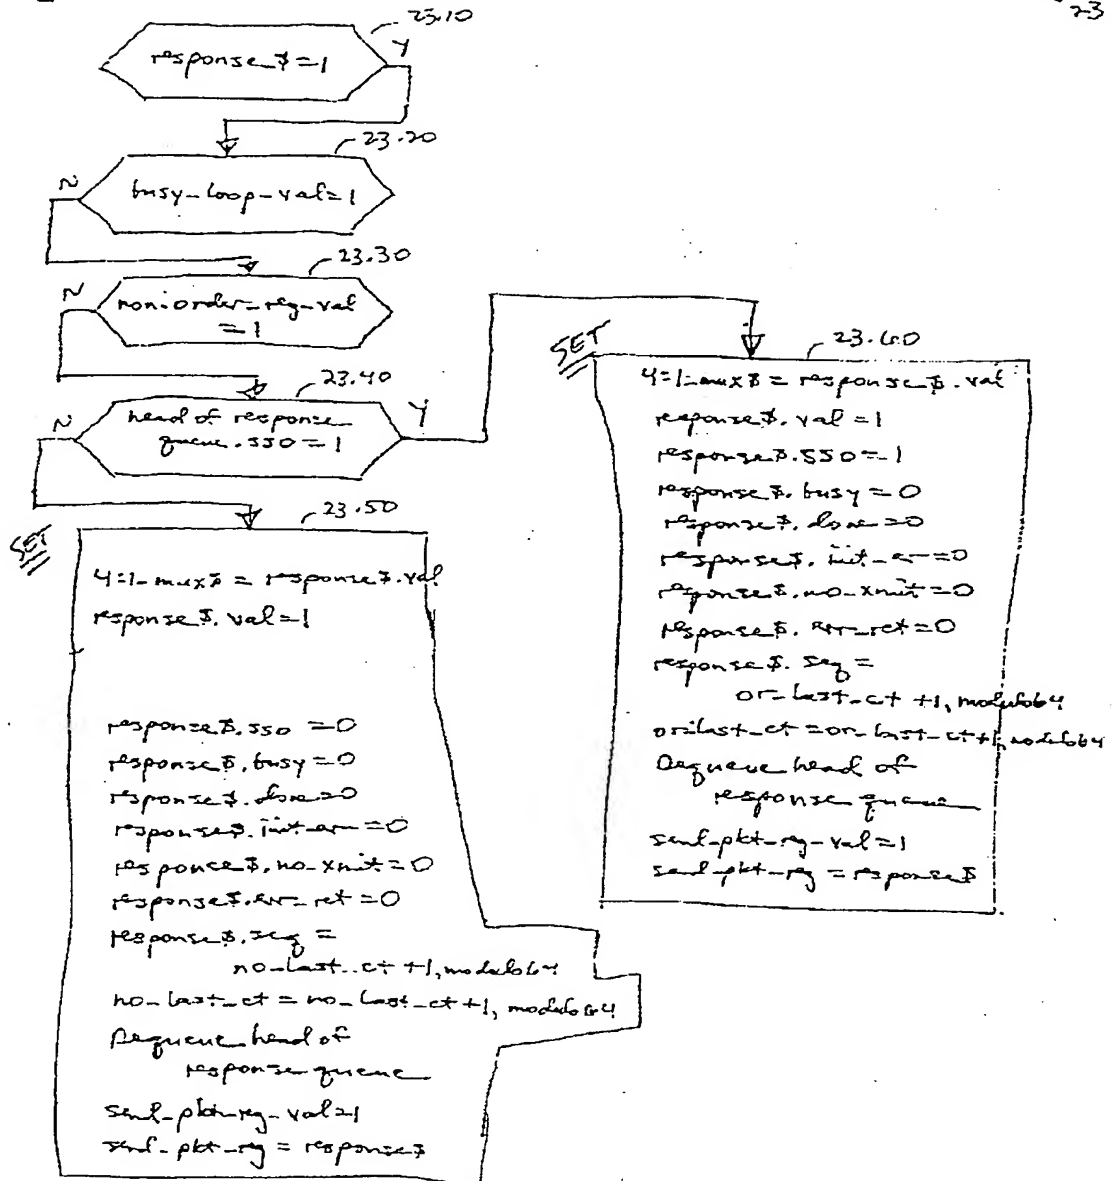 23
23.10
response_$=1
Y
23.20
N
busy-loop-val=1
23.30
N
non-order-reg-val
=1
23.40
N
head of response
queue.SSO=1
Y
23.50
SET
4:1-mux$ = response$.val
response$.val=1
response$.SSO=0
response$.busy=0
response$.done=0
response$.init-err=0
response$.no-xmit=0
response$.err-ret=0
response$.seq=
no-last-ct +1, modulo64
no-last-ct = no-last-ct+1, modulo 64
Dequeue head of
response queue
send-pkt-reg-val=1
send-pkt-reg = response$
SET
23.60
4:1-mux$ = response$.val
response$.val=1
response$.SSO=1
response$.busy=0
response$.done=0
response$.init-err=0
response$.no-xmit=0
response$.err-ret=0
response$.seq=
or-last-ct +1, modulo64
or-last-ct=or-last-ct+1, modulo64
Dequeue head of
response queue
send-pkt-reg-val=1
send-pkt-reg = response$